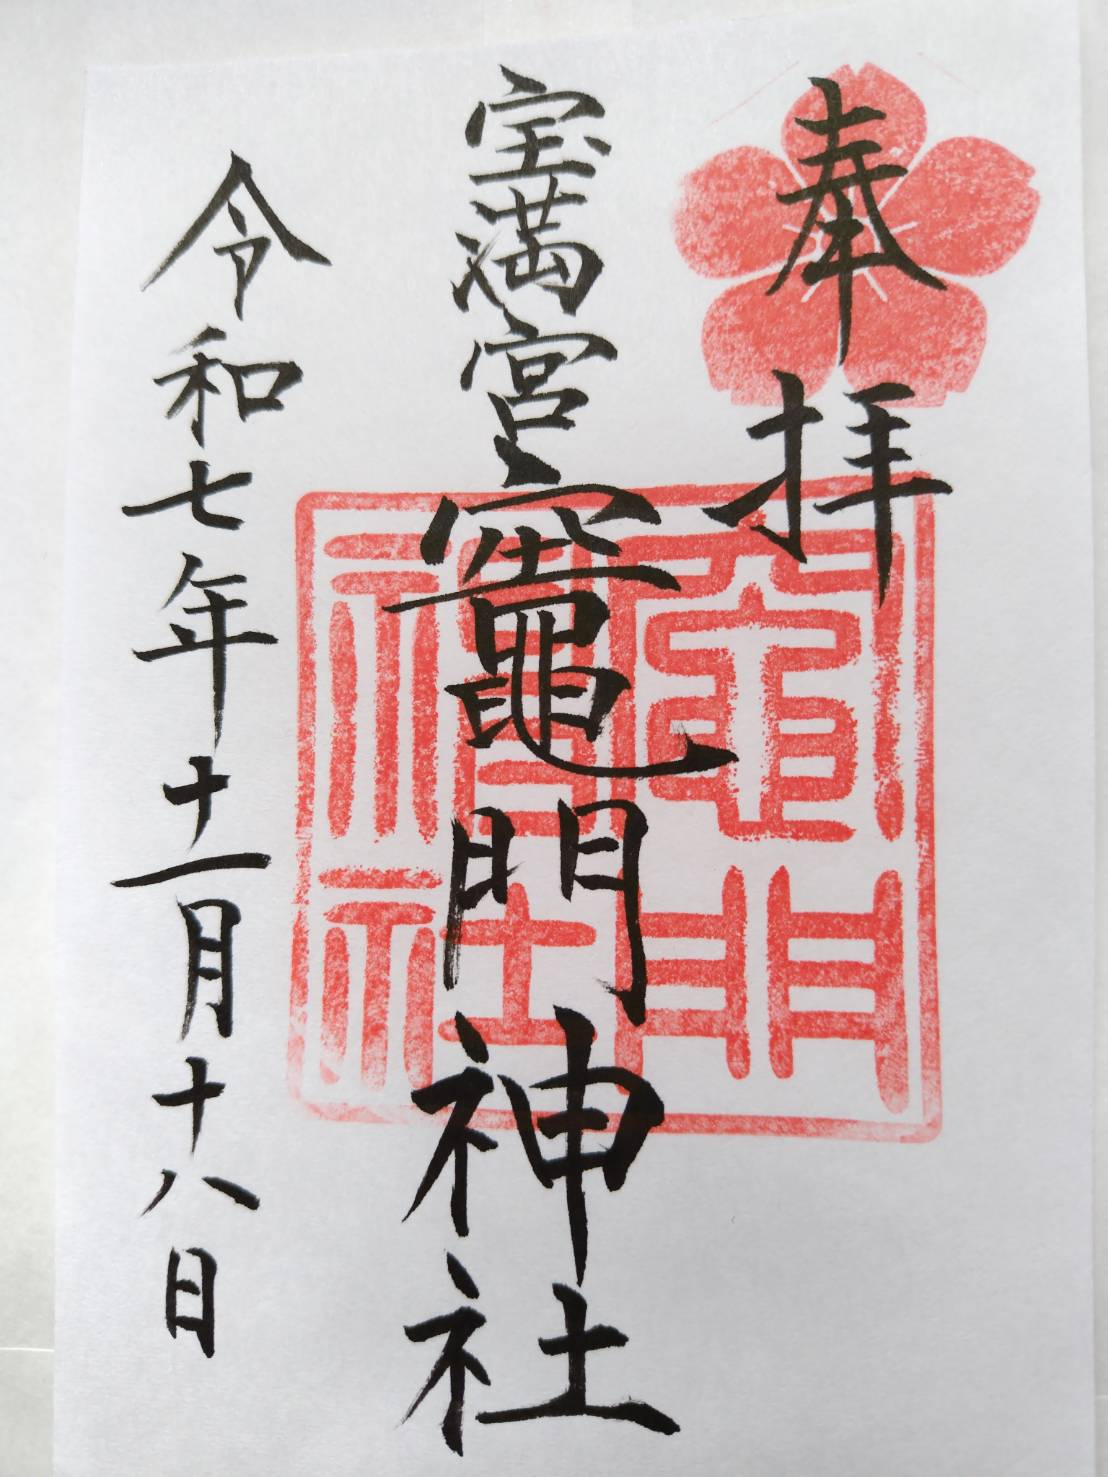 奉拝
宝満宮竈門神社
令和七年十一月十八日
竈門
神社